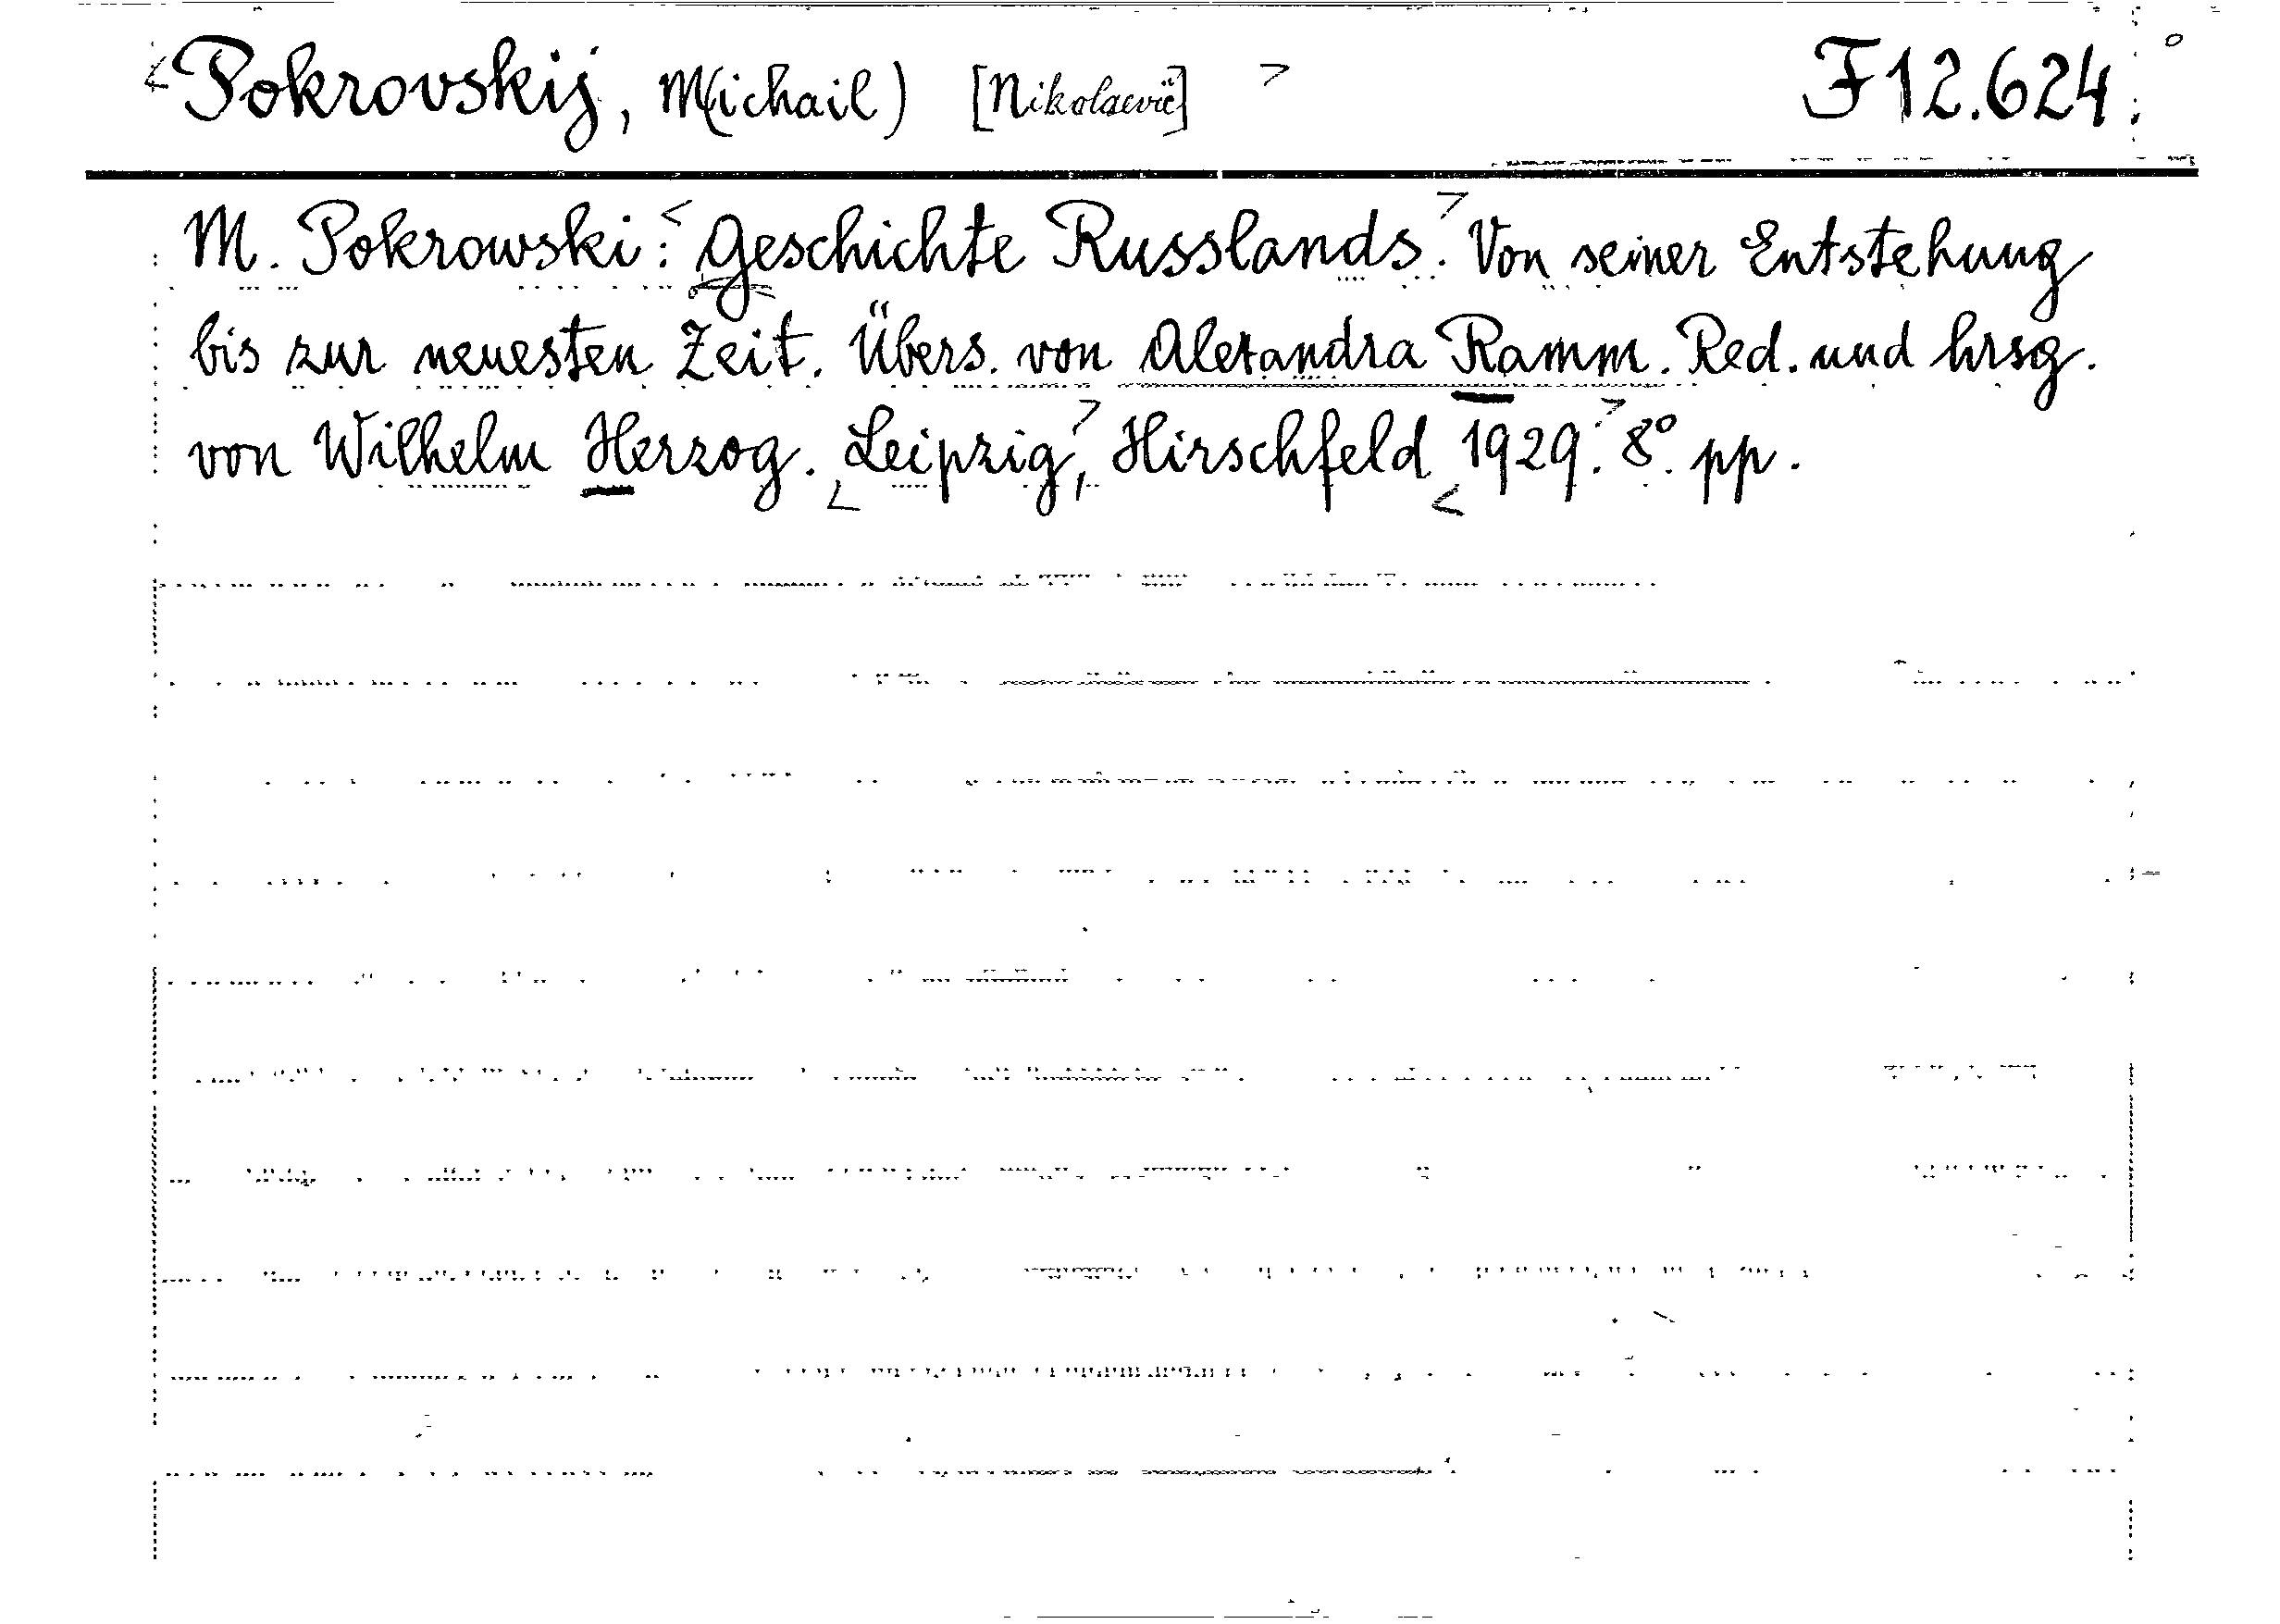 <Pokrovskij, M(ichail) [Nikolaevič]> F 12.624
M. Pokrowski: <Geschichte Russlands.> Von seiner Entstehung
bis zur neuesten Zeit. Übers. von Alexandra Ramm. Red. und hrsg.
von Wilhelm Herzog. <Leipzig,> Hirschfeld <1929.> 8°. pp.